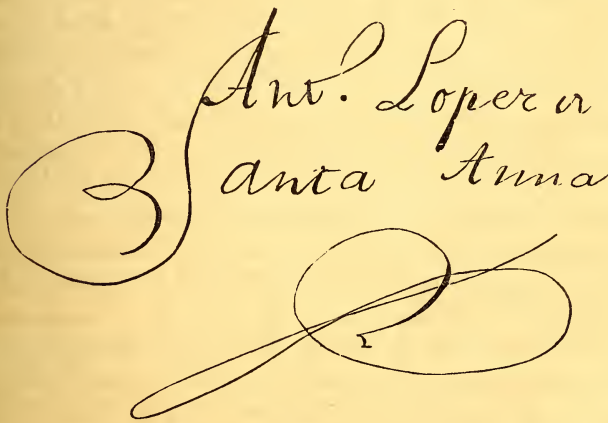 Ant. Lopez de
Santa Anna